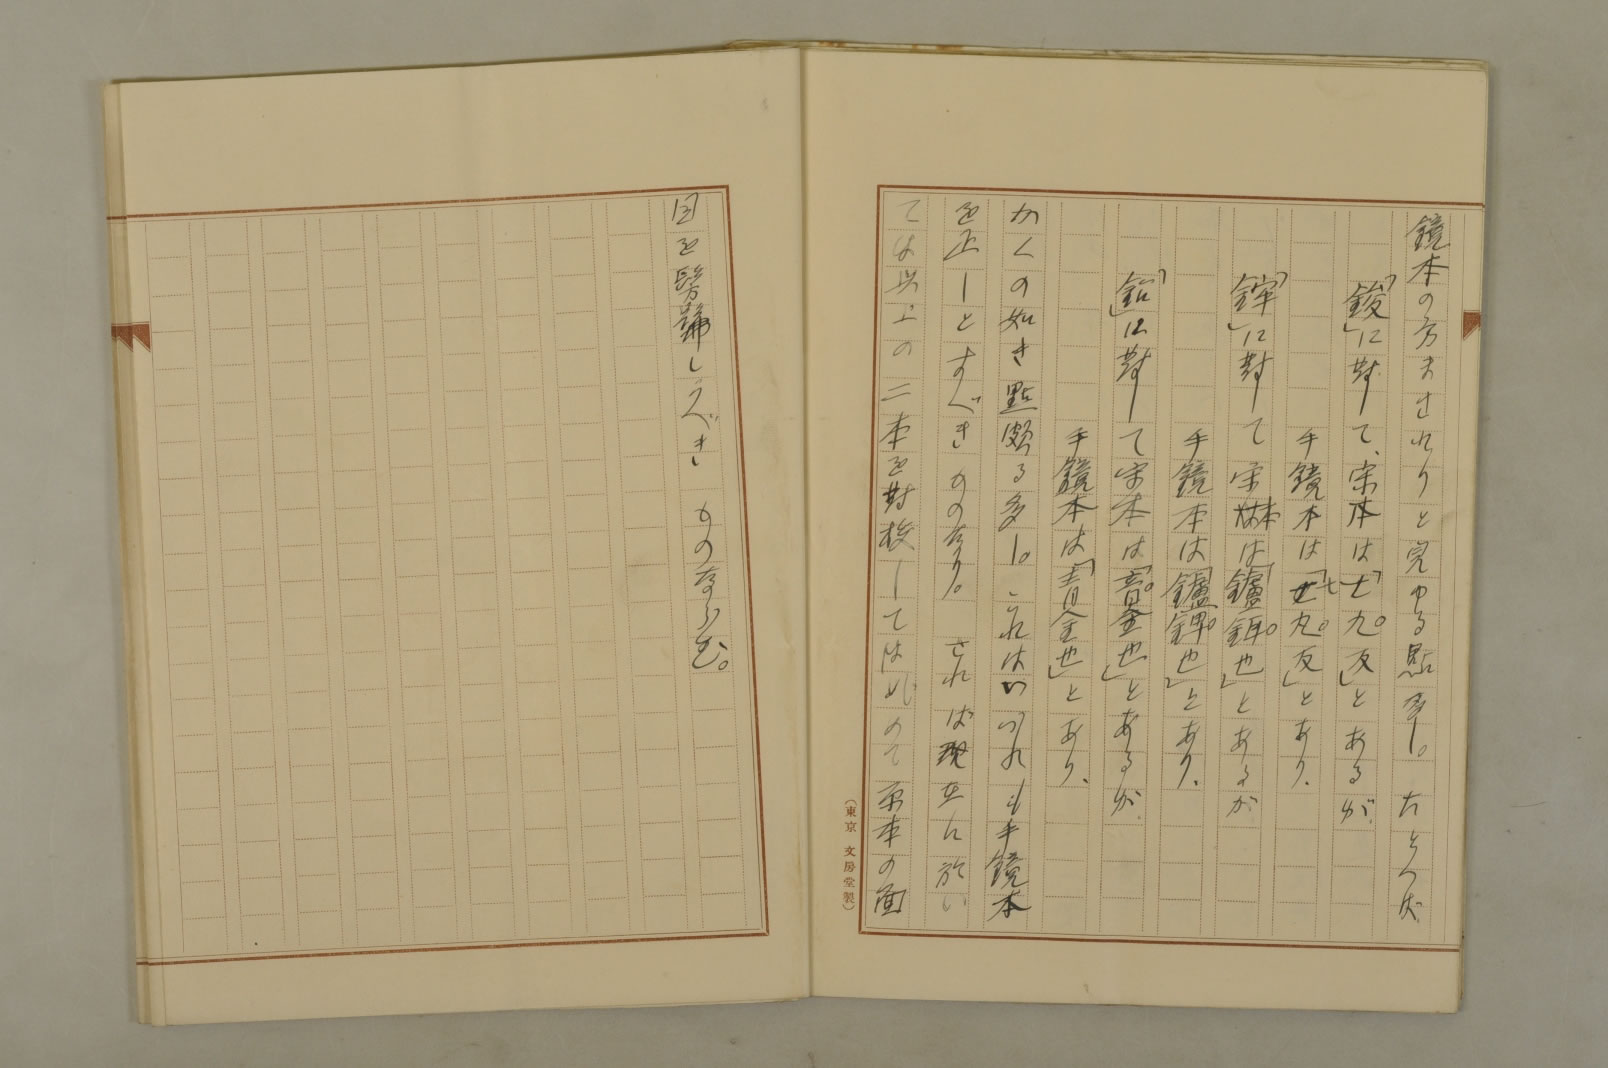 鏡本の方まされりと見ゆる點多し。たとへば
「鋑」に對して、宋本は「士九反」とあるが、
手鏡本は「七九反」とあり、
「鋅」に對して宋本は「鑪鉺也」とあるが
手鏡本は「鑪鋅也」とあり、
「鉛」に對して宋本は「音金也」とあるが、
手鏡本は「青金也」とあり、
かくの如き點頗る多し。これはいづれも手鏡本
を正しとすべきものなり。されば現在に於い
ては以上の二本を對挍してはじめて原本の面
目を髣髴しうべきものならむ。
(東京 文房堂製)